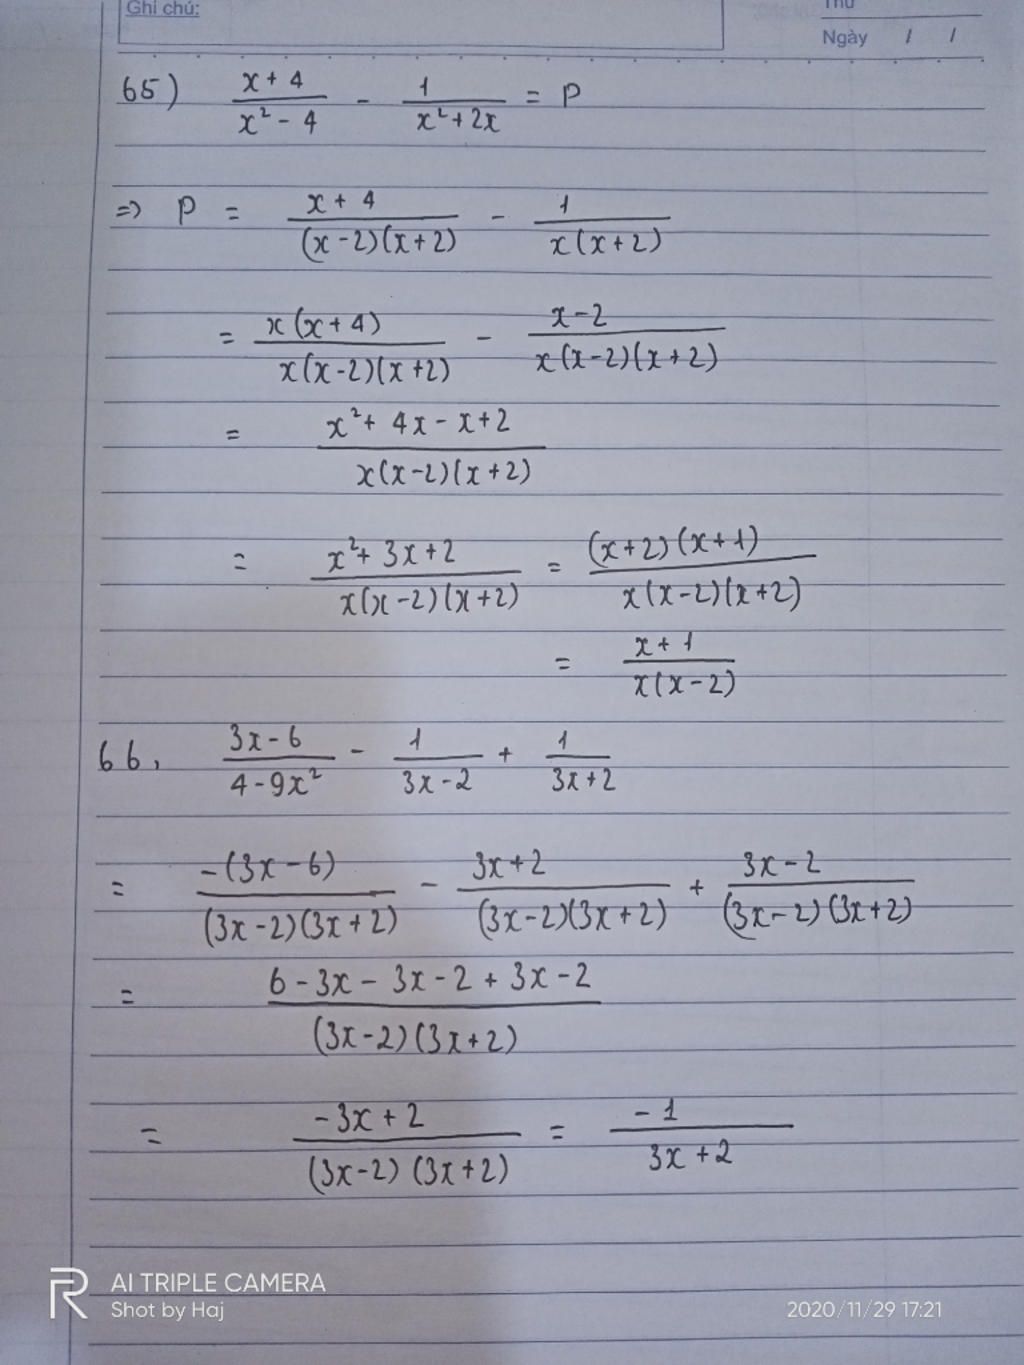 Ghi chú:
Thứ
Ngày / /
65) \frac{x+4}{x^2-4} - \frac{1}{x^2+2x} = P
=> P = \frac{x+4}{(x-2)(x+2)} - \frac{1}{x(x+2)}
= \frac{x(x+4)}{x(x-2)(x+2)} - \frac{x-2}{x(x-2)(x+2)}
= \frac{x^2+4x-x+2}{x(x-2)(x+2)}
= \frac{x^2+3x+2}{x(x-2)(x+2)} = \frac{(x+2)(x+1)}{x(x-2)(x+2)}
= \frac{x+1}{x(x-2)}
66, \frac{3x-6}{4-9x^2} - \frac{1}{3x-2} + \frac{1}{3x+2}
= \frac{-(3x-6)}{(3x-2)(3x+2)} - \frac{3x+2}{(3x-2)(3x+2)} + \frac{3x-2}{(3x-2)(3x+2)}
= \frac{6-3x-3x-2+3x-2}{(3x-2)(3x+2)}
= \frac{-3x+2}{(3x-2)(3x+2)} = \frac{-1}{3x+2}
AI TRIPLE CAMERA
Shot by Haj
2020/11/29 17:21